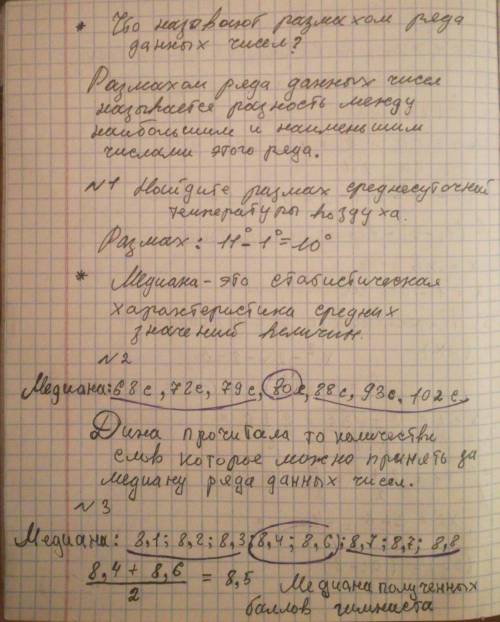 * Что называют размахом ряда
данных чисел?
Размахом ряда данных чисел
называется разность между
наибольшим и наименьшим
числами этого ряда.
№1 Найдите размах среднесуточной
температуры воздуха.
Размах: 11° - 1° = 10°
* Медиана - это статистическая
характеристика средних
значений величин.
№2
Медиана: 68с, 72с, 79с, 80с, 88с, 93с, 102с.
Дина прочитала то количество
слов которое можно принять за
медиану ряда данных чисел.
№3
Медиана: 8,1; 8,2; 8,3; 8,4; 8,6; 8,7; 8,7; 8,8
8,4 + 8,6
2
= 8,5 Медиана полученных
баллов гимнаста